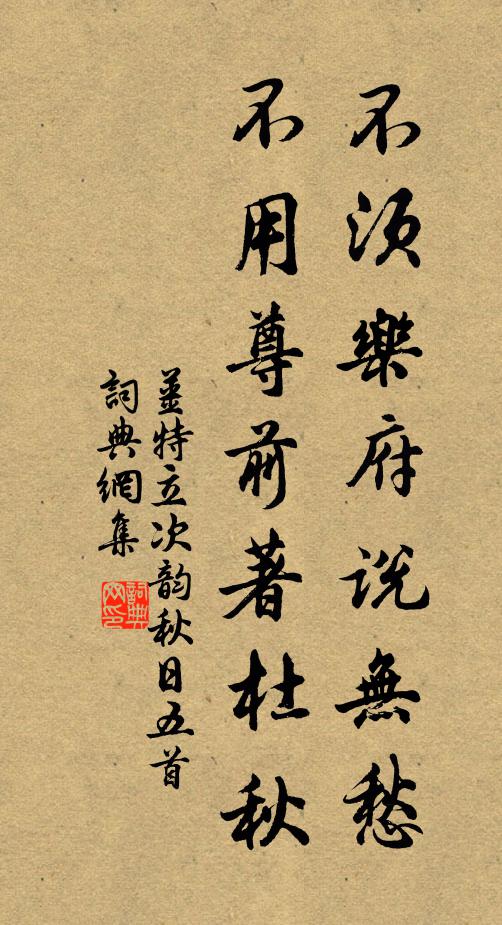 不須樂府説無愁
不用尊前著杜秋
姜特立次韵秋日五首
詞典網集
詞典網印